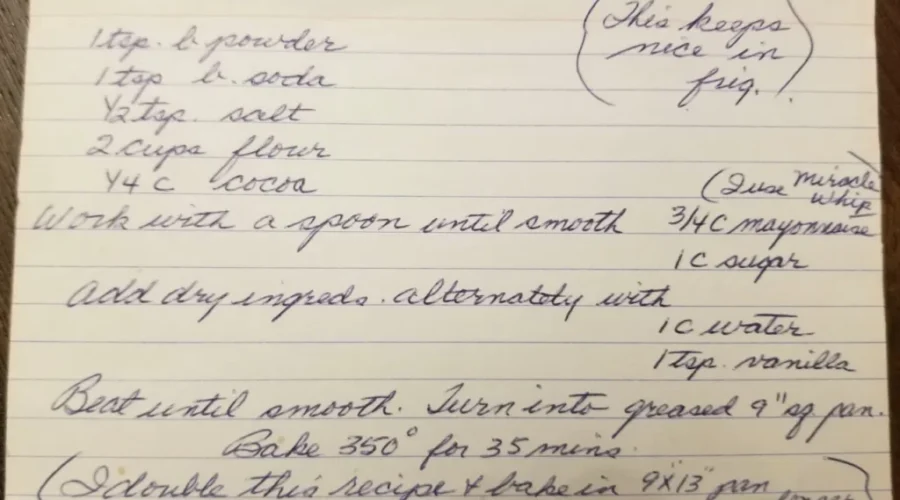 (This keeps
nice in
frig.)
1 tsp. b. powder
1 tsp b. soda
1/2 tsp. salt
2 cups flour
1/4 c cocoa
(I use miracle
whip
Work with a spoon until smooth 3/4 c mayonnaise
1 c sugar
Add dry ingreds. alternately with
1 c water
1 tsp. vanilla
Beat until smooth. Turn into greased 9" sq. pan.
Bake 350° for 35 mins.
(I double this recipe + bake in 9"x13" pan